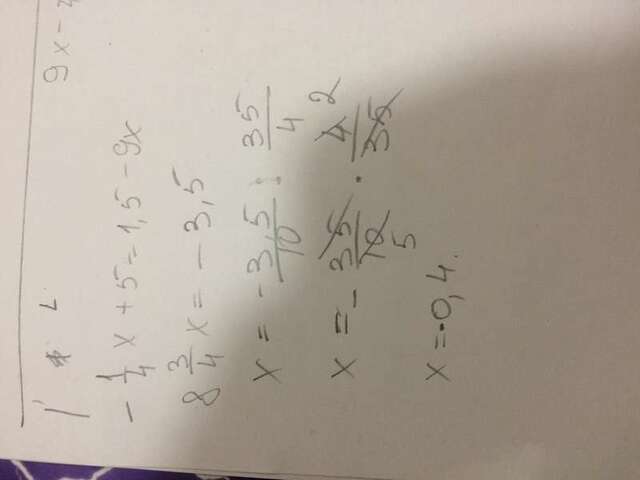 9x -
- 1/4 x + 5 = 1,5 - 9x
8 3/4 x = - 3,5
x = - 3,5/10 : 35/4
x = - 35/10 · 4/35 2
5
x = -0,4.